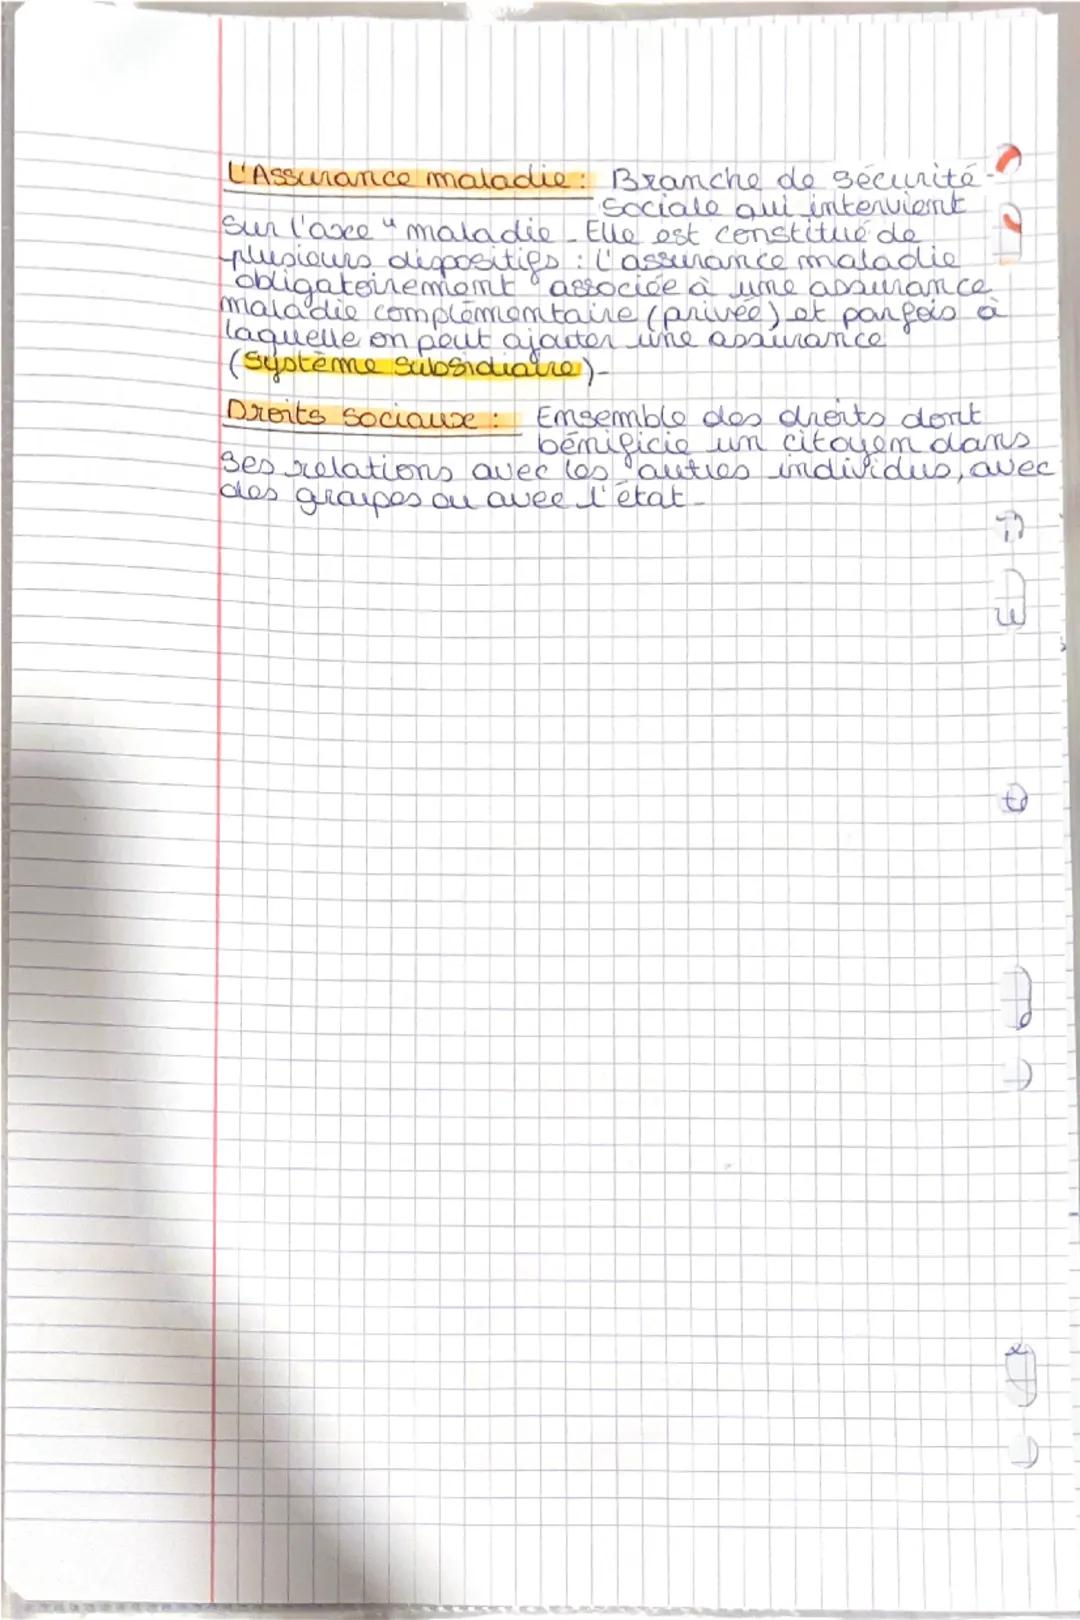 L'Assurance maladie : Branche de sécurité
sociale qui intervient
sur l'axe "maladie. Elle est constitué de
plusieurs dispositifs : l'assurance maladie
obligatoirement associée à une assurance
maladie complémentaire (privée) et parfois à
laquelle on peut ajouter une assurance
(système subsidiaire).
Droits sociaux : Ensemble des droits dont
bénificie un citoyen dans
ses relations avec les autres individus, avec
des groupes ou avec l'état.